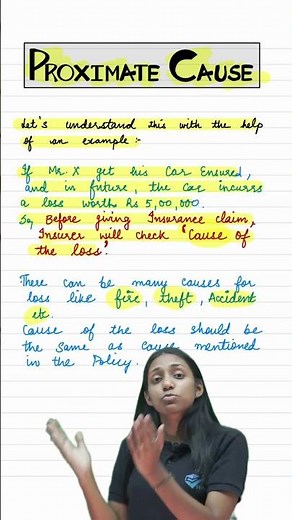 PROXIMATE CAUSE
Let's understand this with the help
of an example :-
If Mr. X get his Car Ensured,
and in future, the Car incurrs
a loss worth Rs 5,00,000.
So, Before giving Insurance claim,
Insurer will check 'Cause of
the loss'.
There can be many causes for
loss like fire, theft, Accident
etc.
Cause of the loss should be
the same as cause mentioned
in the Policy.